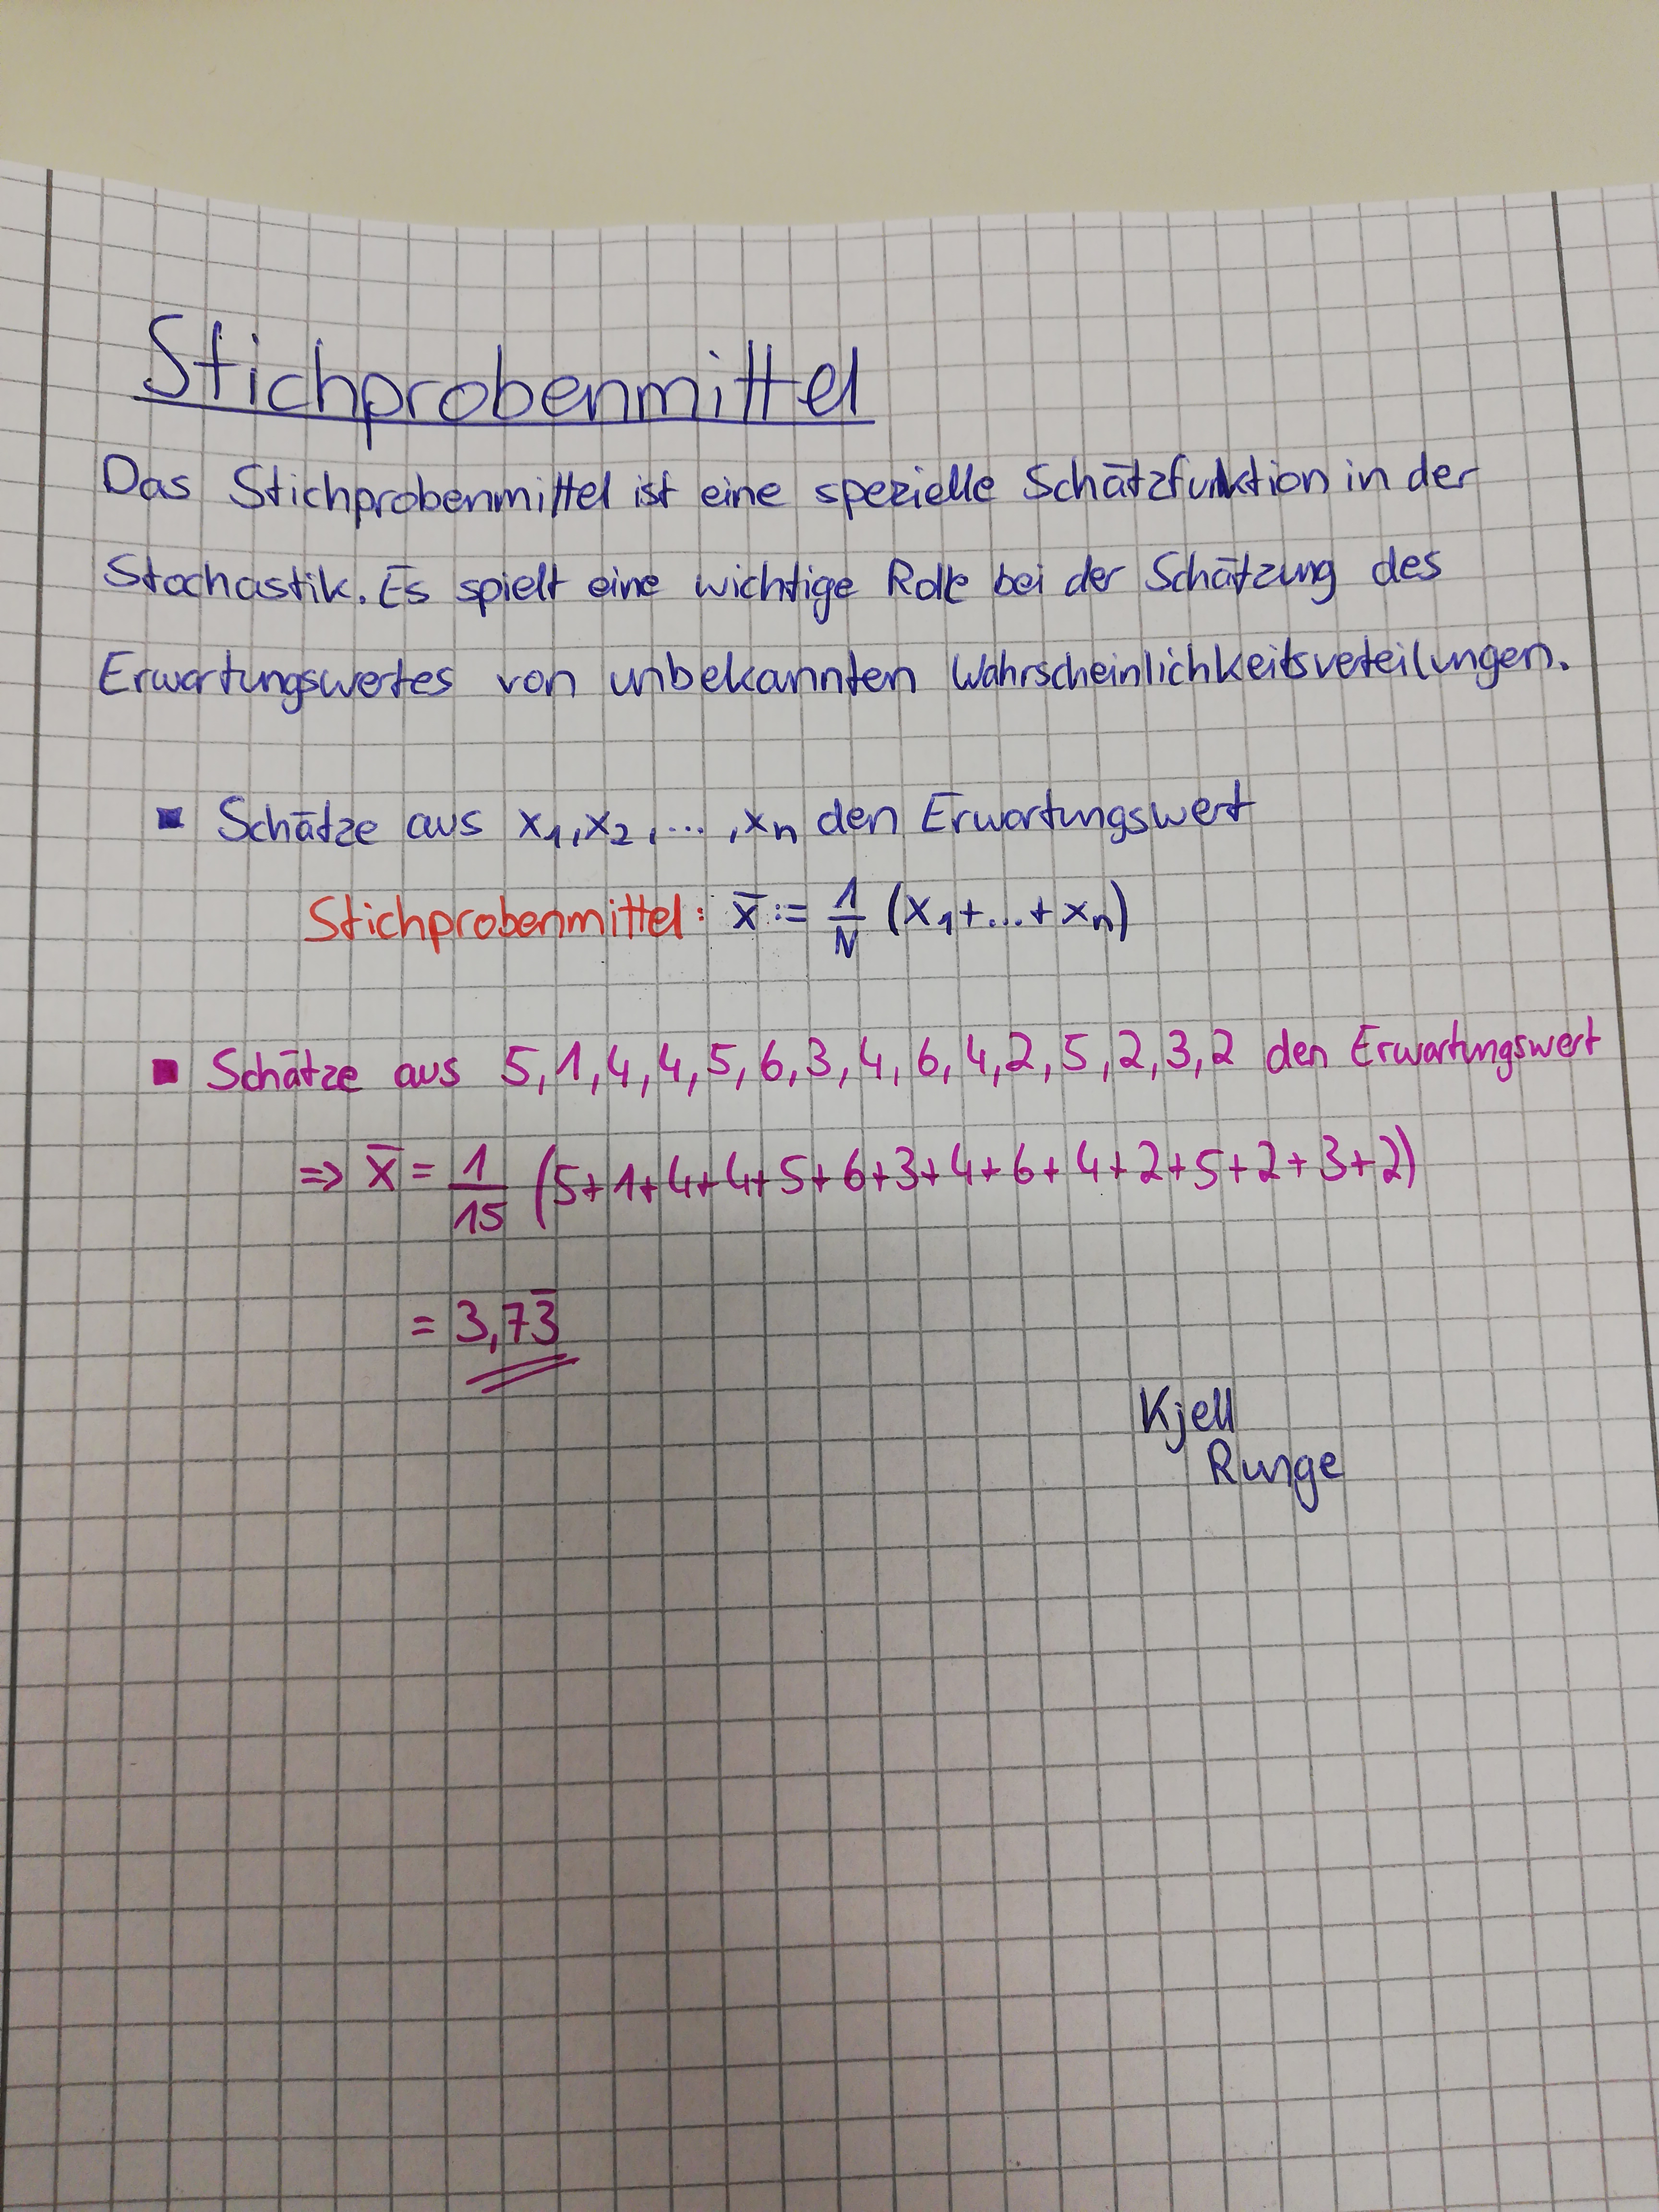 Stichprobenmittel
Das Stichprobenmittel ist eine spezielle Schätzfunktion in der
Stochastik. Es spielt eine wichtige Rolle bei der Schätzung des
Erwartungswertes von unbekannten Wahrscheinlichkeitsveteilungen.
▪ Schätze aus x₁, x₂, ..., xₙ den Erwartungswert
Stichprobenmittel: x̄ := 1/N (x₁+...+xₙ)
▪ Schätze aus 5,1,4,4,5,6,3,4,6,4,2,5,2,3,2 den Erwartungswert
⇒ x̄ = 1/15 (5+1+4+4+5+6+3+4+6+4+2+5+2+3+2)
= 3,73̅
Kjell
Runge